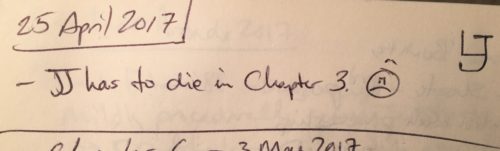 25 April 2017
- JJ has to die in Chapter 3.
3 May 2017